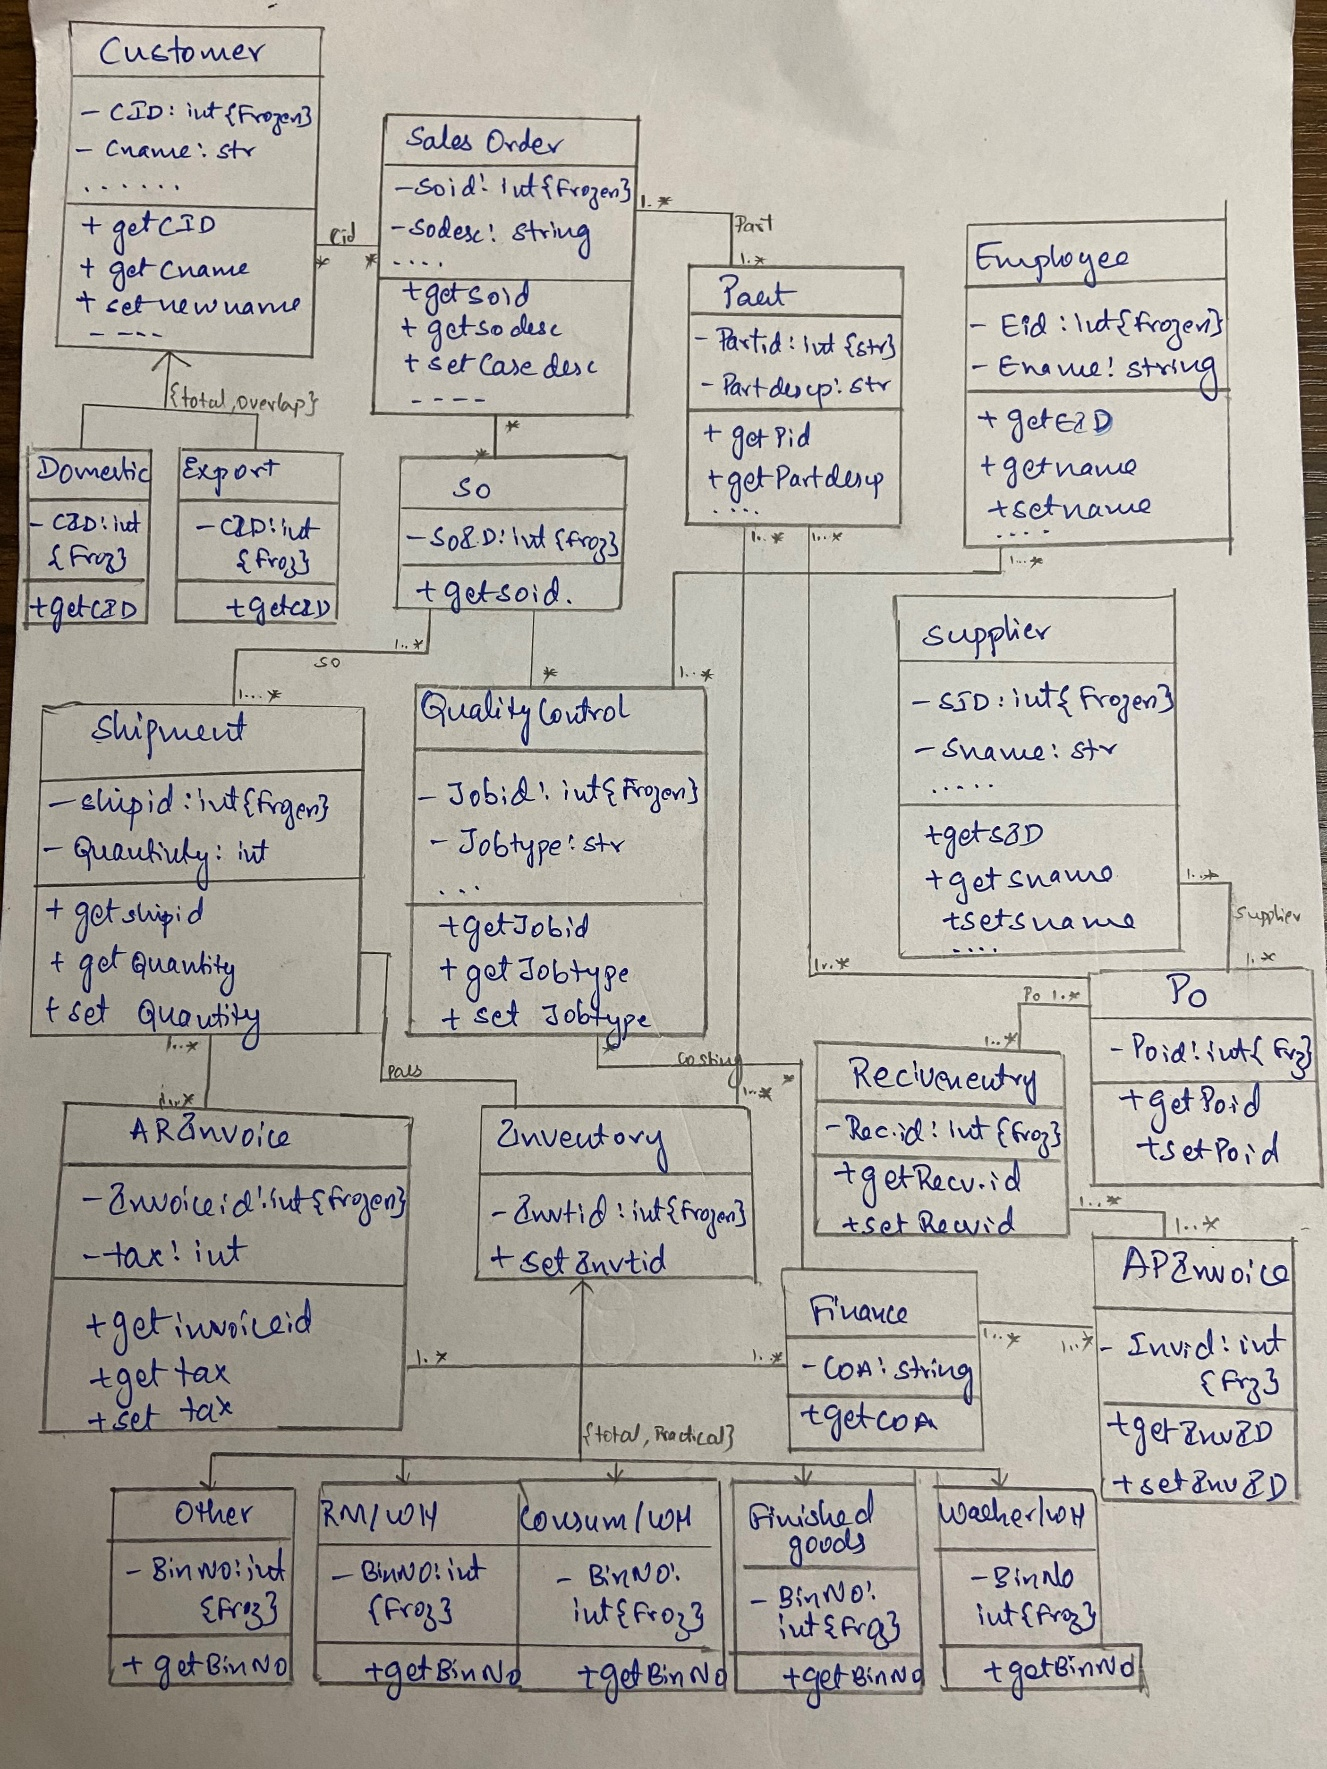 Customer
- CID: int {Frozen}
- Cname: str
. . . . . .
+ getCID
+ get Cname
+ set newname
- - - -
Cid
*
*
Sales Order
- Soid: Int {Frozen}
- Sodesc: String
. . . .
+ getsoid
+ getsodesc
+ set Case desc
- - - -
1..*
Part
1..*
Part
- Partid: int {str}
- Partdescp: str
+ get Pid
+ get Partdescp
. . . .
Employee
- Eid: Int {frozen}
- Ename: String
+ getEID
+ getname
+ setname
. . . .
{total, overlap}
Domestic
- CID: int
{Froz}
+ getCID
Export
- CID: int
{Froz}
+ getCID
*
*
SO
- SOID: Int {froz}
+ getsoid.
1..*
1..*
1...*
1..*
so
1...*
*
1..*
Supplier
- SID: int {Frozen}
- Sname: str
. . . . .
+ getSID
+ get sname
+ setsname
. . . .
1..*
Supplier
1..*
Shipment
- shipid: int {frozen}
- Quantivty: int
+ get shipid
+ get Quantity
+ set Quantity
1..*
Quality Control
- Jobid: int {Frozen}
- Jobtype: str
. . .
+ getJobid
+ get Jobtype
+ set Jobtype
*
Costing
1..*
*
1..*
Po 1..*
1..*
Po
- Poid: int {Frz}
+ getPoid
+ setPoid
ARInvoice
- Invoiceid: int {frozen}
- tax: int
+ get invoiceid
+ get tax
+ set tax
Inventory
- Invtid: int {frozen}
+ set Invtid
Recivenentry
- Rec.id: Int {froz}
+ getRecv.id
+ set Recvid
1..*
1..*
Finance
- COA: string
+ getCOA
1..*
1..*
1..*
1..*
APInvoice
- Invid: int
{Frz}
+ getInvID
+ setInvID
{total, Practical}
Other
- BinNO: int
{Froz}
+ getBinNo
RM/WH
- BinNO: int
{Froz}
+ getBinNo
Consum/WH
- BinNO:
int {Froz}
+ getBinNo
Finished
goods
- BinNO:
int {Frz}
+ getBinNo
Washer/WH
- BinNo
int {froz}
+ getBinNo